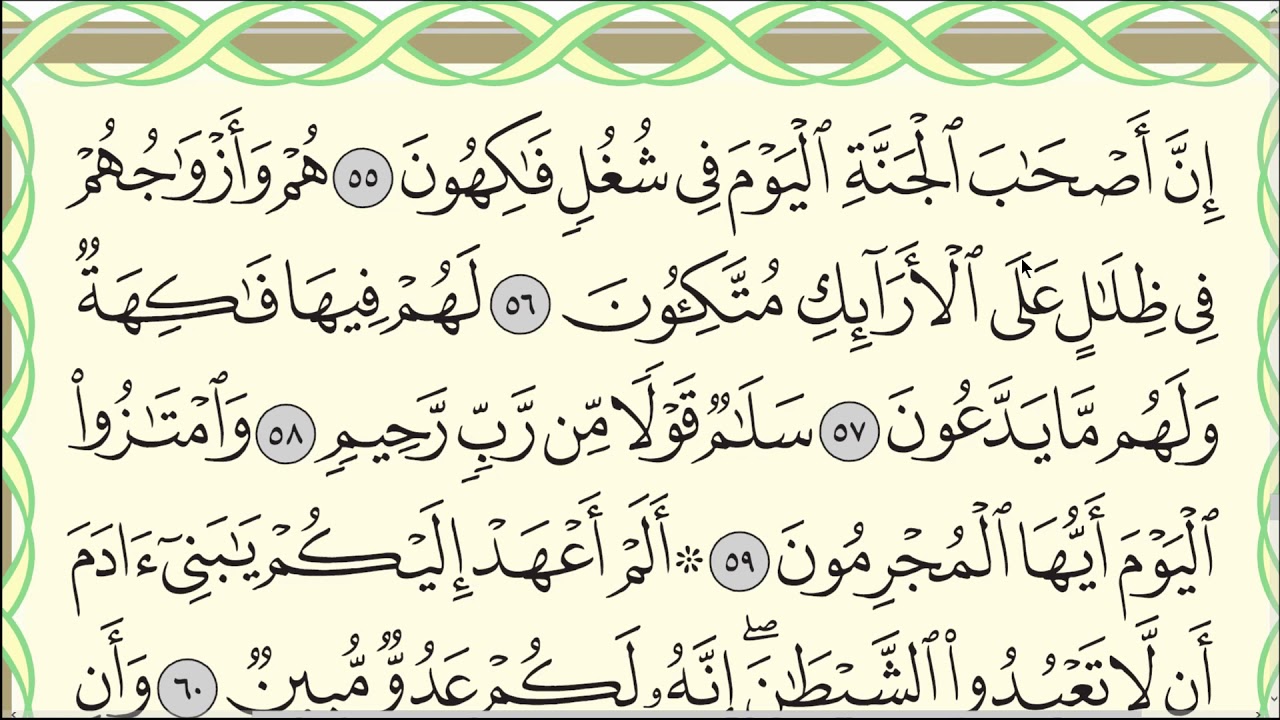 إِنَّ أَصْحَٰبَ ٱلْجَنَّةِ ٱلْيَوْمَ فِى شُغُلٍ فَٰكِهُونَ ٥٥ هُمْ وَأَزْوَٰجُهُمْ
فِى ظِلَٰلٍ عَلَى ٱلْأَرَآئِكِ مُتَّكِـُٔونَ ٥٦ لَهُمْ فِيهَا فَٰكِهَةٌ
وَلَهُم مَّا يَدَّعُونَ ٥٧ سَلَٰمٌ قَوْلًا مِّن رَّبٍّ رَّحِيمٍ ٥٨ وَٱمْتَٰزُوا۟
ٱلْيَوْمَ أَيُّهَا ٱلْمُجْرِمُونَ ٥٩ ۞ أَلَمْ أَعْهَدْ إِلَيْكُمْ يَٰبَنِىٓ ءَادَمَ
أَن لَّا تَعْبُدُوا۟ ٱلشَّيْطَٰنَ ۖ إِنَّهُۥ لَكُمْ عَدُوٌّ مُّبِينٌ ٦٠ وَأَنِ